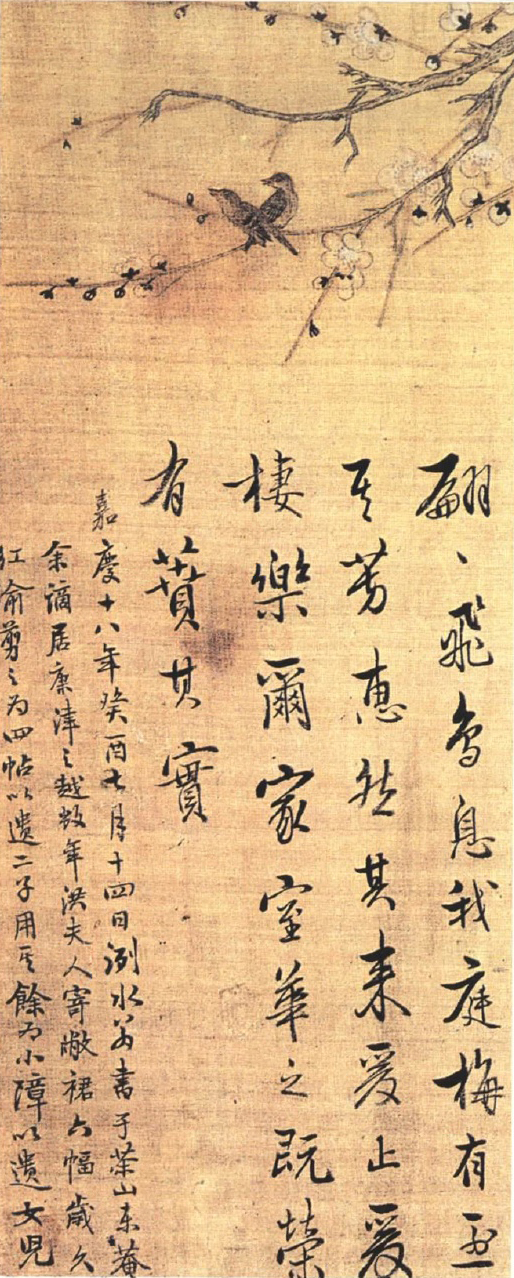 翩〻飛鳥息我庭梅有烈
其芳惠然其來爰止爰
棲樂爾家室華之既榮
有蕡其實
嘉慶十八年癸酉七月十四日洌水翁書于茶山東菴
余謫居康津之越數年洪夫人寄敝裙六幅歲久
紅渝剪之為四帖以遺二子用其餘為小障以遺女兒